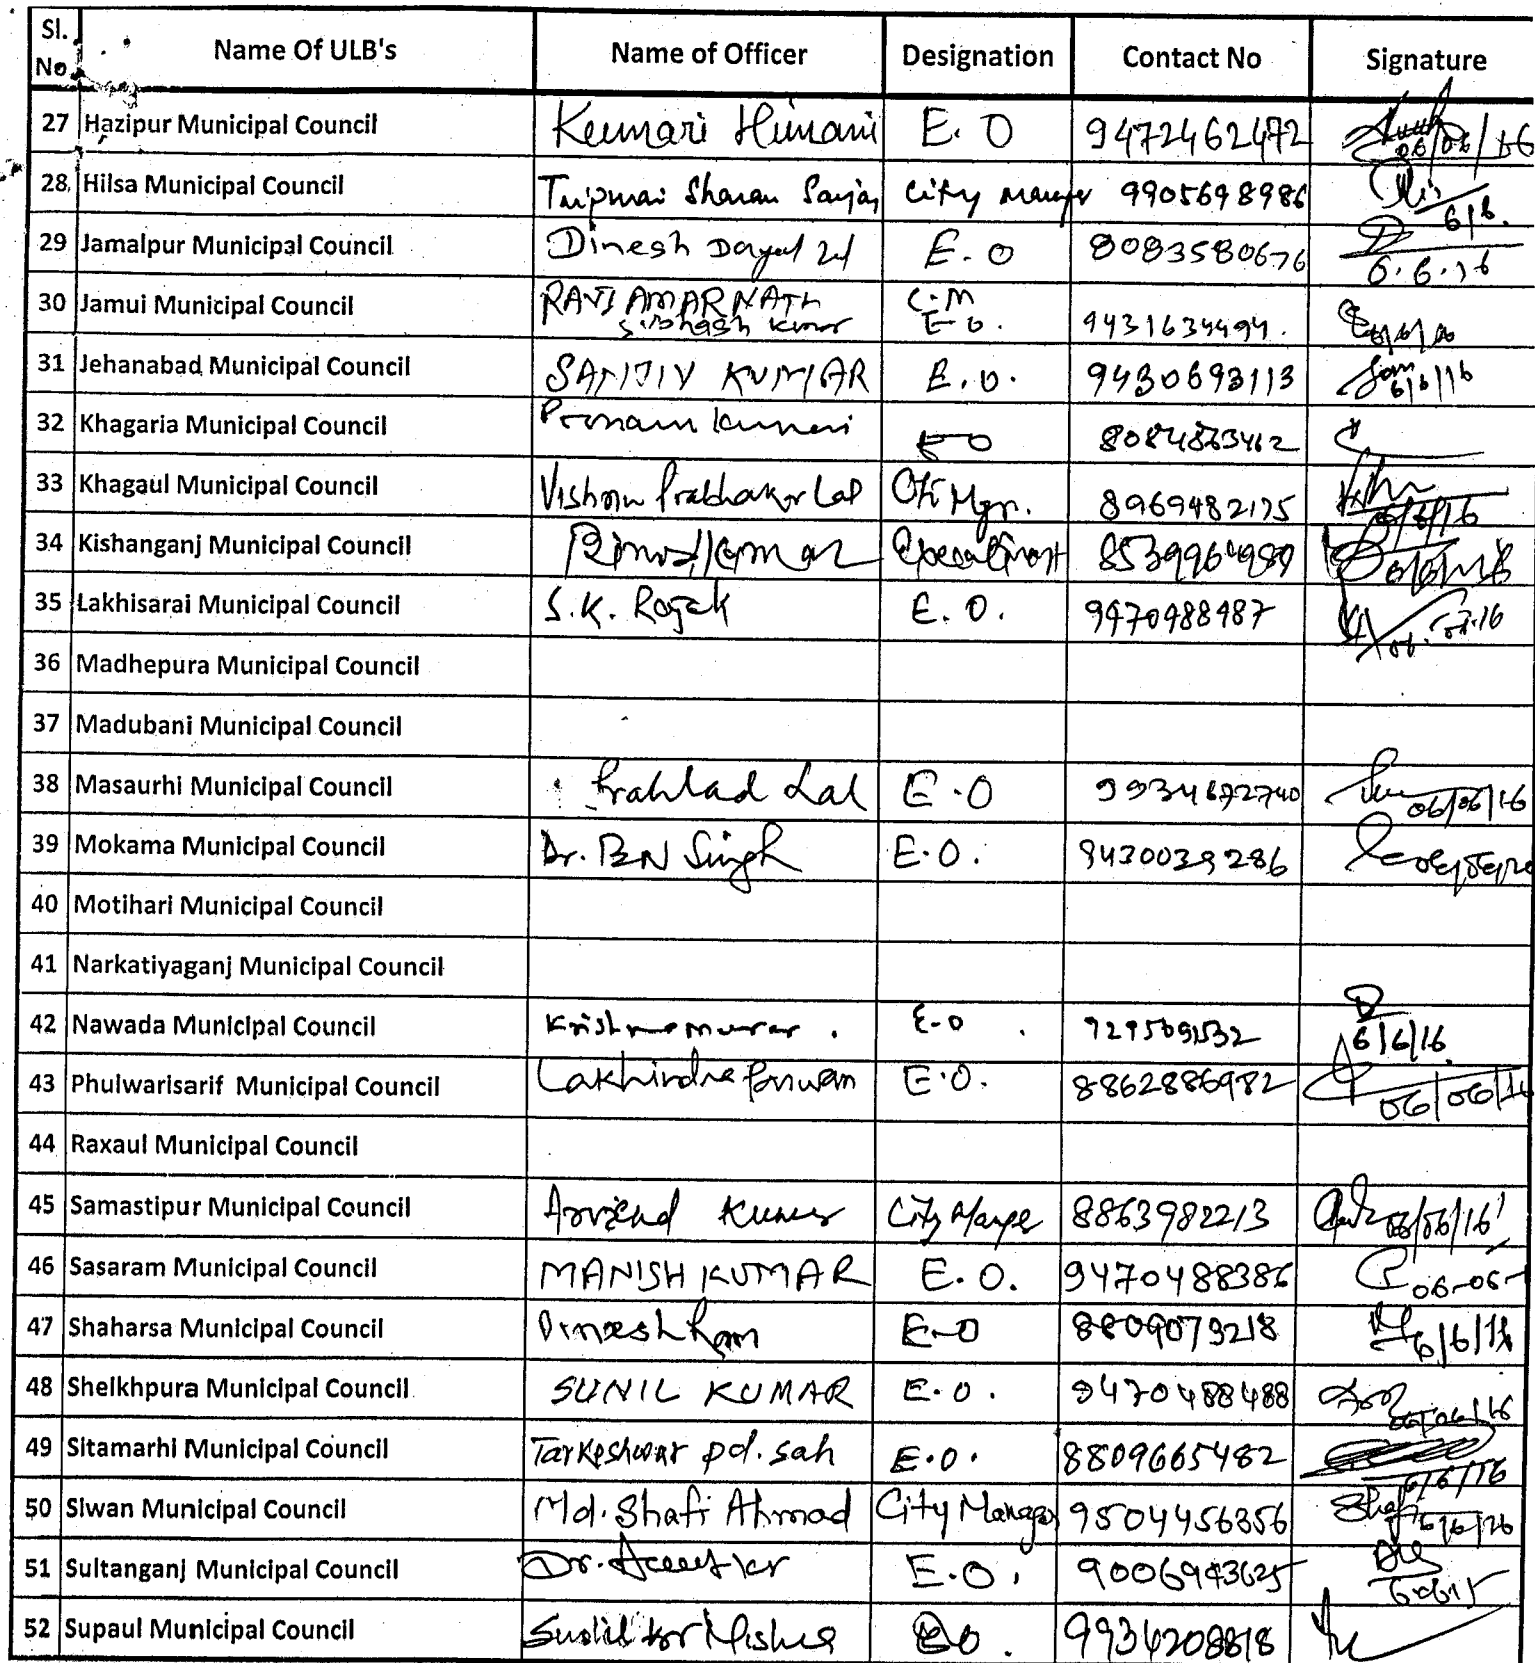 Sl. No. Name Of ULB's Name of Officer Designation Contact No Signature
27 Hazipur Municipal Council Kumari Himani E.O 9472462472 06/06/16
28 Hilsa Municipal Council Tripurari Sharan Sanjay City Manager 9905698986 6/6.
29 Jamalpur Municipal Council Dinesh Dayal Lal E.O 8083580676 6.6.16
30 Jamui Municipal Council RAVI AMARNATH C.M
Subhash Kumar E.O. 9431634494.
31 Jehanabad Municipal Council SANJIV KUMAR E.O. 9430693113 6/6/16
32 Khagaria Municipal Council Poonam Kumari EO
33 Khagaul Municipal Council Vishnu Prabhakar Lal City Mgr. 8969482175 6/6/16
34 Kishanganj Municipal Council Binod Kumar
35 Lakhisarai Municipal Council S.K. Rajak E.O. 9470488487
36 Madhepura Municipal Council
37 Madubani Municipal Council
38 Masaurhi Municipal Council Prahlad Lal E.O 9934672740 06/06/16
39 Mokama Municipal Council Dr. BN Singh E.O. 9430039286
40 Motihari Municipal Council
41 Narkatiyaganj Municipal Council
42 Nawada Municipal Council Krishna murar. E.O. 6/6/16
43 Phulwarisarif Municipal Council Lakhindra Paswan E.O. 8862886982 06/06/16
44 Raxaul Municipal Council
45 Samastipur Municipal Council Arvind Kumar City Manger 8863982213 06/06/16
46 Sasaram Municipal Council MANISH KUMAR E.O. 9470488386 06-06-
47 Shaharsa Municipal Council Dinesh Ram E-O 8809079218 6/6/16
48 Sheikhpura Municipal Council SUNIL KUMAR E.O. 9470488488 06/06/16
49 Sitamarhi Municipal Council Tarkeshwar pd. sah E.O. 8809665482 6/6/16
50 Siwan Municipal Council Md. Shafi Ahmad City Manager 9504456356 Shafi 6/6/16
51 Sultanganj Municipal Council Dr. E.O. 9006943625
52 Supaul Municipal Council Sushil Kr Mishra EO. 9934208818